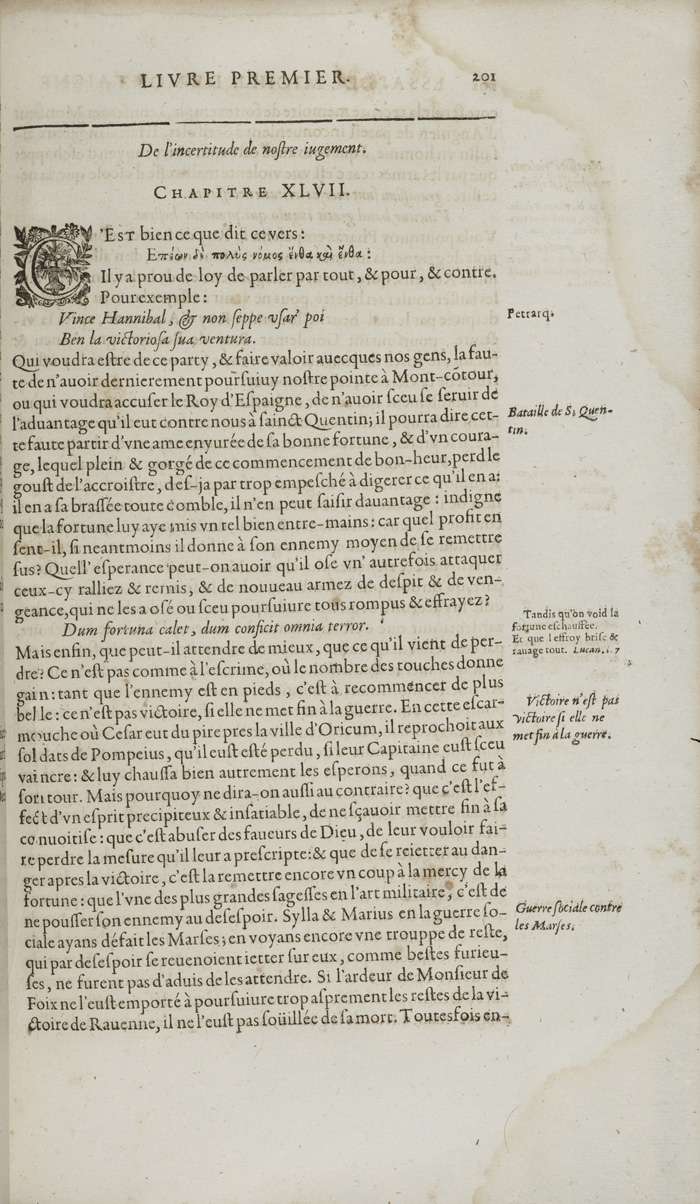 LIVRE PREMIER. 201
De l'incertitude de nostre iugement.
CHAPITRE XLVII.
C'EST bien ce que dit ce vers:
Επέων δὲ πολὺς νόμος ἔνθα καὶ ἔνθα:
Il y a prou de loy de parler par tout, & pour, & contre.
Pour exemple:
Vince Hannibal, & non seppe vsar' poi
Petrarq.
Ben la victoriosa sua ventura.
Qui voudra estre de ce party, & faire valoir auecques nos gens, la fau-
te de n'auoir dernierement poursuiuy nostre pointe à Mont-cōtour,
ou qui voudra accuser le Roy d'Espaigne, de n'auoir sceu se seruir de
l'aduantage qu'il eut contre nous à sainct Quentin; il pourra dire cet-
Bataille de S. Quen-
tin.
te faute partir d'vne ame enyurée de sa bonne fortune, & d'vn coura-
ge, lequel plein & gorgé de ce commencement de bon-heur, perd le
goust de l'accroistre, des-ja par trop empesché à digerer ce qu'il en a:
il en a sa brassée toute comble, il n'en peut saisir dauantage: indigne
que la fortune luy aye mis vn tel bien entre-mains: car quel profit en
sent-il, si neantmoins il donne à son ennemy moyen de se remettre
sus? Quell' esperance peut-on auoir qu'il ose vn' autrefois attaquer
ceux-cy ralliez & remis, & de nouueau armez de despit & de ven-
geance, qui ne les a osé ou sceu poursuiure tous rompus & effrayez?
Dum fortuna calet, dum conficit omnia terror.
Tandis qu'on void la
fortune eschauffée.
Et que l'effroy brise &
rauage tout. Lucan. l. 7
Mais enfin, que peut-il attendre de mieux, que ce qu'il vient de per-
dre? Ce n'est pas comme à l'escrime, où le nombre des touches donne
gain: tant que l'ennemy est en pieds, c'est à recommencer de plus
belle: ce n'est pas victoire, si elle ne met fin à la guerre. En cette escar-
Victoire n'est pas
victoire si elle ne
met fin à la guerre.
mouche où Cesar eut du pire pres la ville d'Oricum, il reprochoit aux
soldats de Pompeius, qu'il eust esté perdu, si leur Capitaine eust sceu
vaincre: & luy chaussa bien autrement les esperons, quand ce fut à
son tour. Mais pourquoy ne dira-on aussi au contraire? que c'est l'ef-
fect d'vn esprit precipiteux & insatiable, de ne sçauoir mettre fin à sa
conuoitise: que c'est abuser des faueurs de Dieu, de leur vouloir fai-
re perdre la mesure qu'il leur a prescripte: & que de se reietter au dan-
ger apres la victoire, c'est la remettre encore vn coup à la mercy de la
fortune: que l'vne des plus grandes sagesses en l'art militaire, c'est de
ne pousser son ennemy au desespoir. Sylla & Marius en la guerre so-
Guerre sociale contre
les Marses.
ciale ayans défait les Marses; en voyans encore vne trouppe de reste,
qui par desespoir se reuenoient ietter sur eux, comme bestes furieu-
ses, ne furent pas d'aduis de les attendre. Si l'ardeur de Monsieur de
Foix ne l'eust emporté à poursuiure trop asprement les restes de la vi-
ctoire de Rauenne, il ne l'eust pas soüillée de sa mort. Toutesfois en-